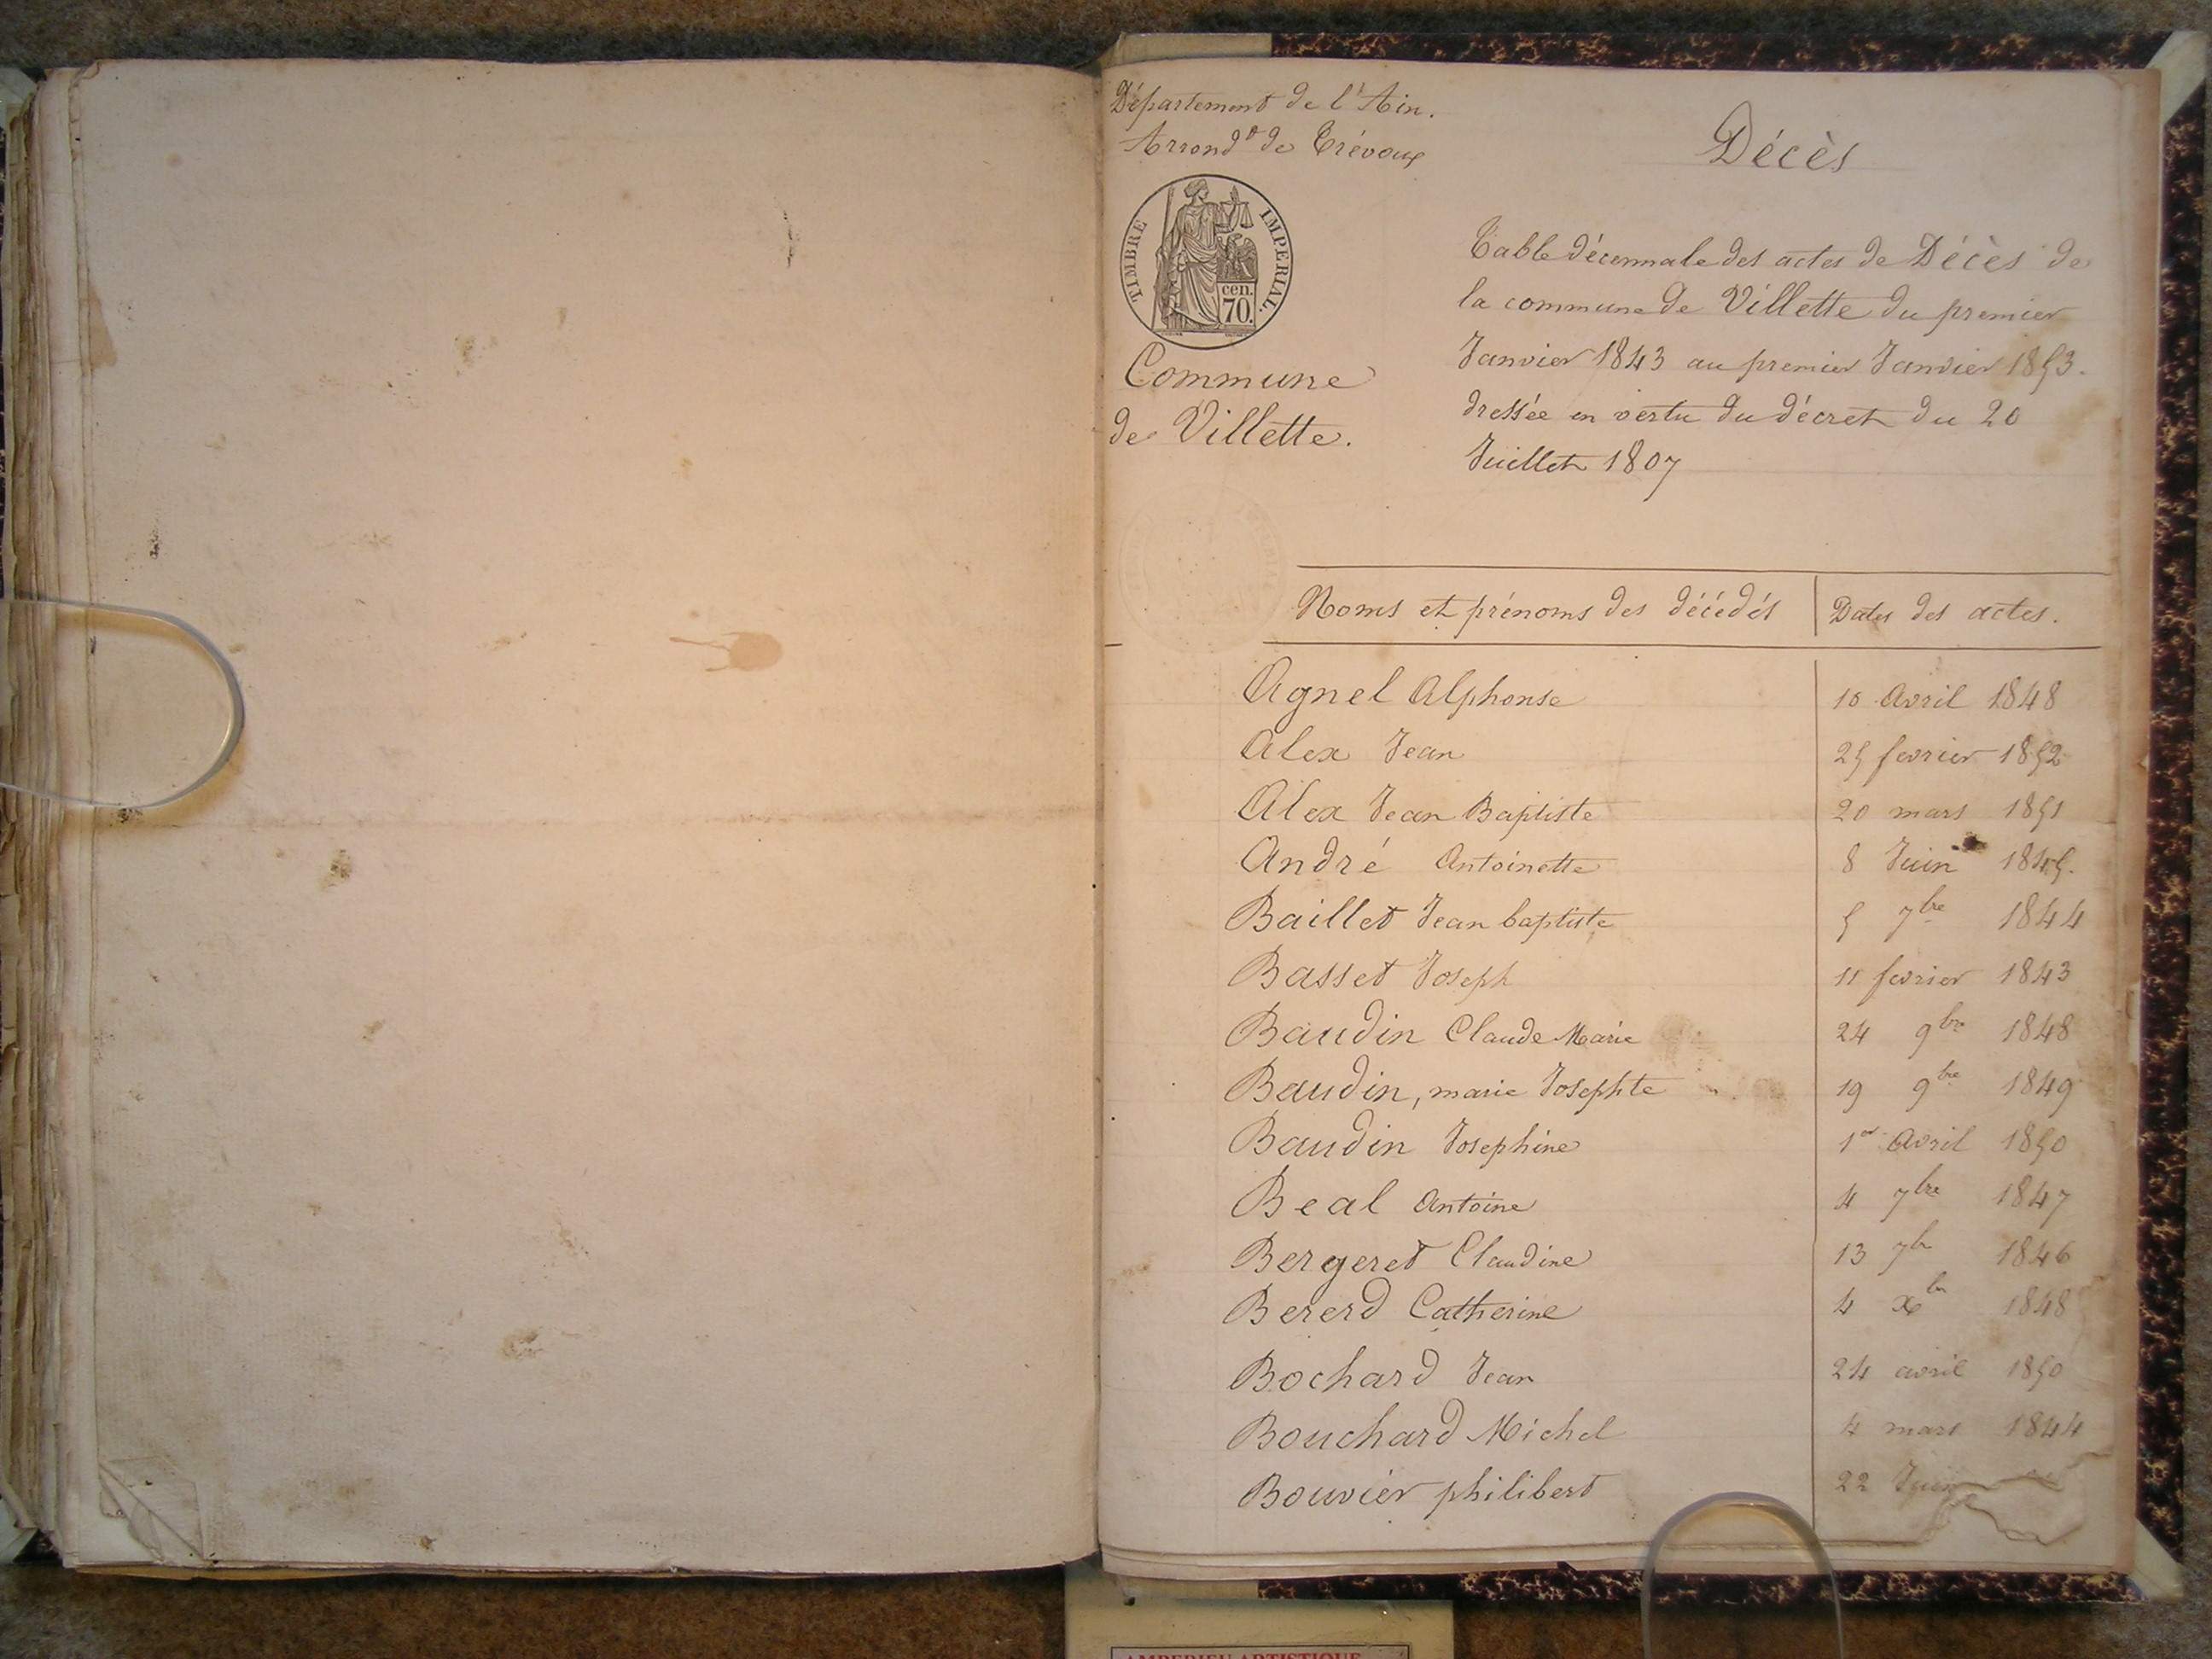 Département de l'Ain.
Arrond^t de Trévoux
TIMBRE IMPERIAL.
cen.
70.
Commune
de Villette.
Décès
Table décennale des actes de Décès de
la commune de Villette du premier
Janvier 1843 au premier Janvier 1853.
dressée en vertu du décret du 20
Juillet 1807
Noms et prénoms des décédés Dates des actes.
Agnel Alphonse 10 Avril 1848
Alex Jean 25 fevrier 1852
Alex Jean Baptiste 20 mars 1851
André Antoinette 8 Juin 1845.
Baillet Jean baptiste 5 7^bre 1844
Basset Joseph 11 fevrier 1843
Baudin Claude Marie 24 9^bre 1848
Baudin, marie Josephte 19 9^bre 1849
Baudin Josephine 1^er Avril 1850
Beal Antoine 4 7^bre 1847
Bergeret Claudine 13 7^br 1846
Bererd Catherine 4 x^br 1848
Bochard Jean 24 avril 1850
Bouchard Michel 4 mars 1844
Bouvier philibert 22 Juin
AMBERIEU ARTISTIQUE